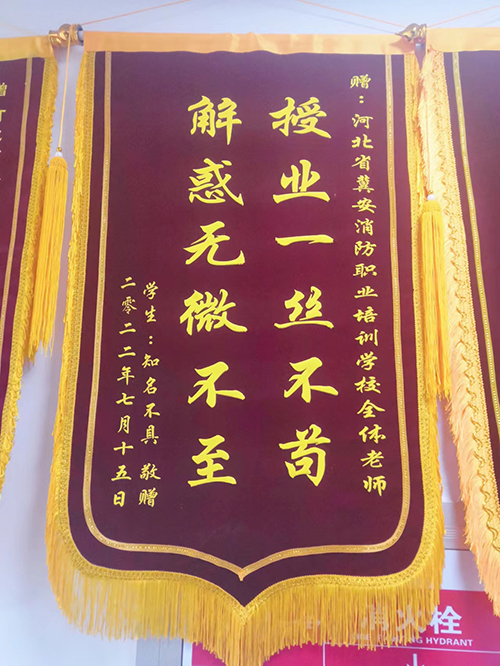 赠：河北省冀安消防职业培训学校全体老师
授业一丝不苟
解惑无微不至
学生：知名不具 敬赠
二零二二年七月十五日
消火栓
HYDRANT